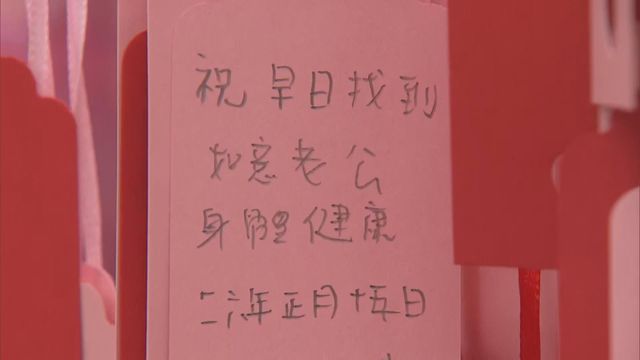 祝早日找到
如意老公
身體健康
二六年正月十五日